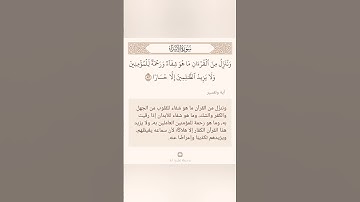 سُورَةُ الإِسْرَاءِ
وَنُنَزِّلُ مِنَ ٱلْقُرْءَانِ مَا هُوَ شِفَآءٌ وَرَحْمَةٌ لِّلْمُؤْمِنِينَ
وَلَا يَزِيدُ ٱلظَّٰلِمِينَ إِلَّا خَسَارًا ٨٢
آية وتفسير
وننزل من القرآن ما هو شفاء للقلوب من الجهل
والكفر والشك، وما هو شفاء للأبدان إذا رقيت
به، وما هو رحمة للمؤمنين العاملين به، ولا يزيد
هذا القرآن الكفار إلا هلاكًا؛ لأن سماعه يغيظهم،
ويزيدهم تكذيبًا وإعراضًا عنه.